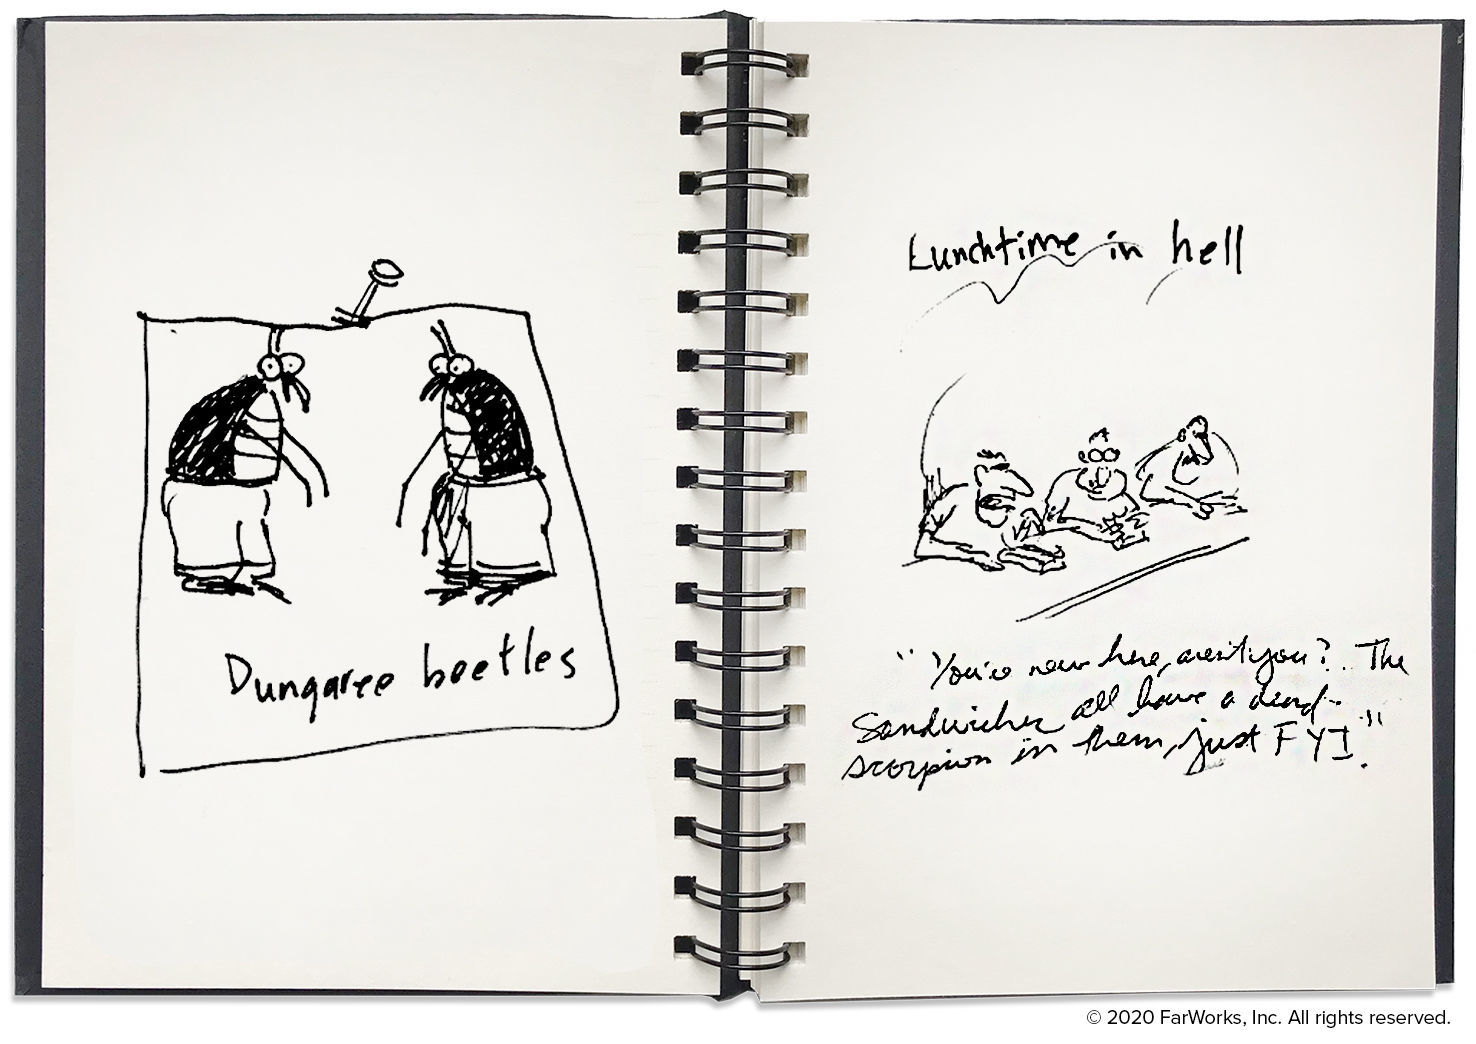 Dungaree beetles
Lunchtime in hell
"You're new here, aren't you? The
Sandwiches all have a dead
scorpion in them, just FYI."
© 2020 FarWorks, Inc. All rights reserved.